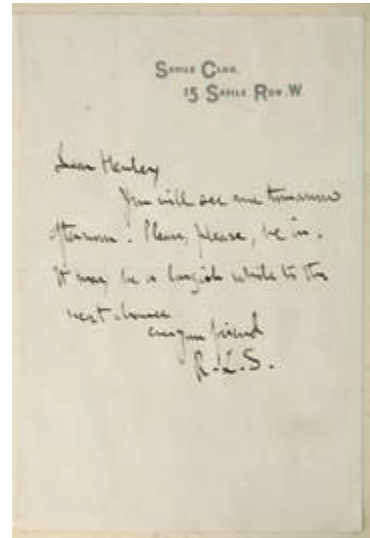 SAVILE CLUB.
15 SAVILE ROW. W.
Dear Henley
You will see me tomorrow
afternoon. Please, please, be in.
It may be a longish while to the
next chance
ever your friend
R.L.S.